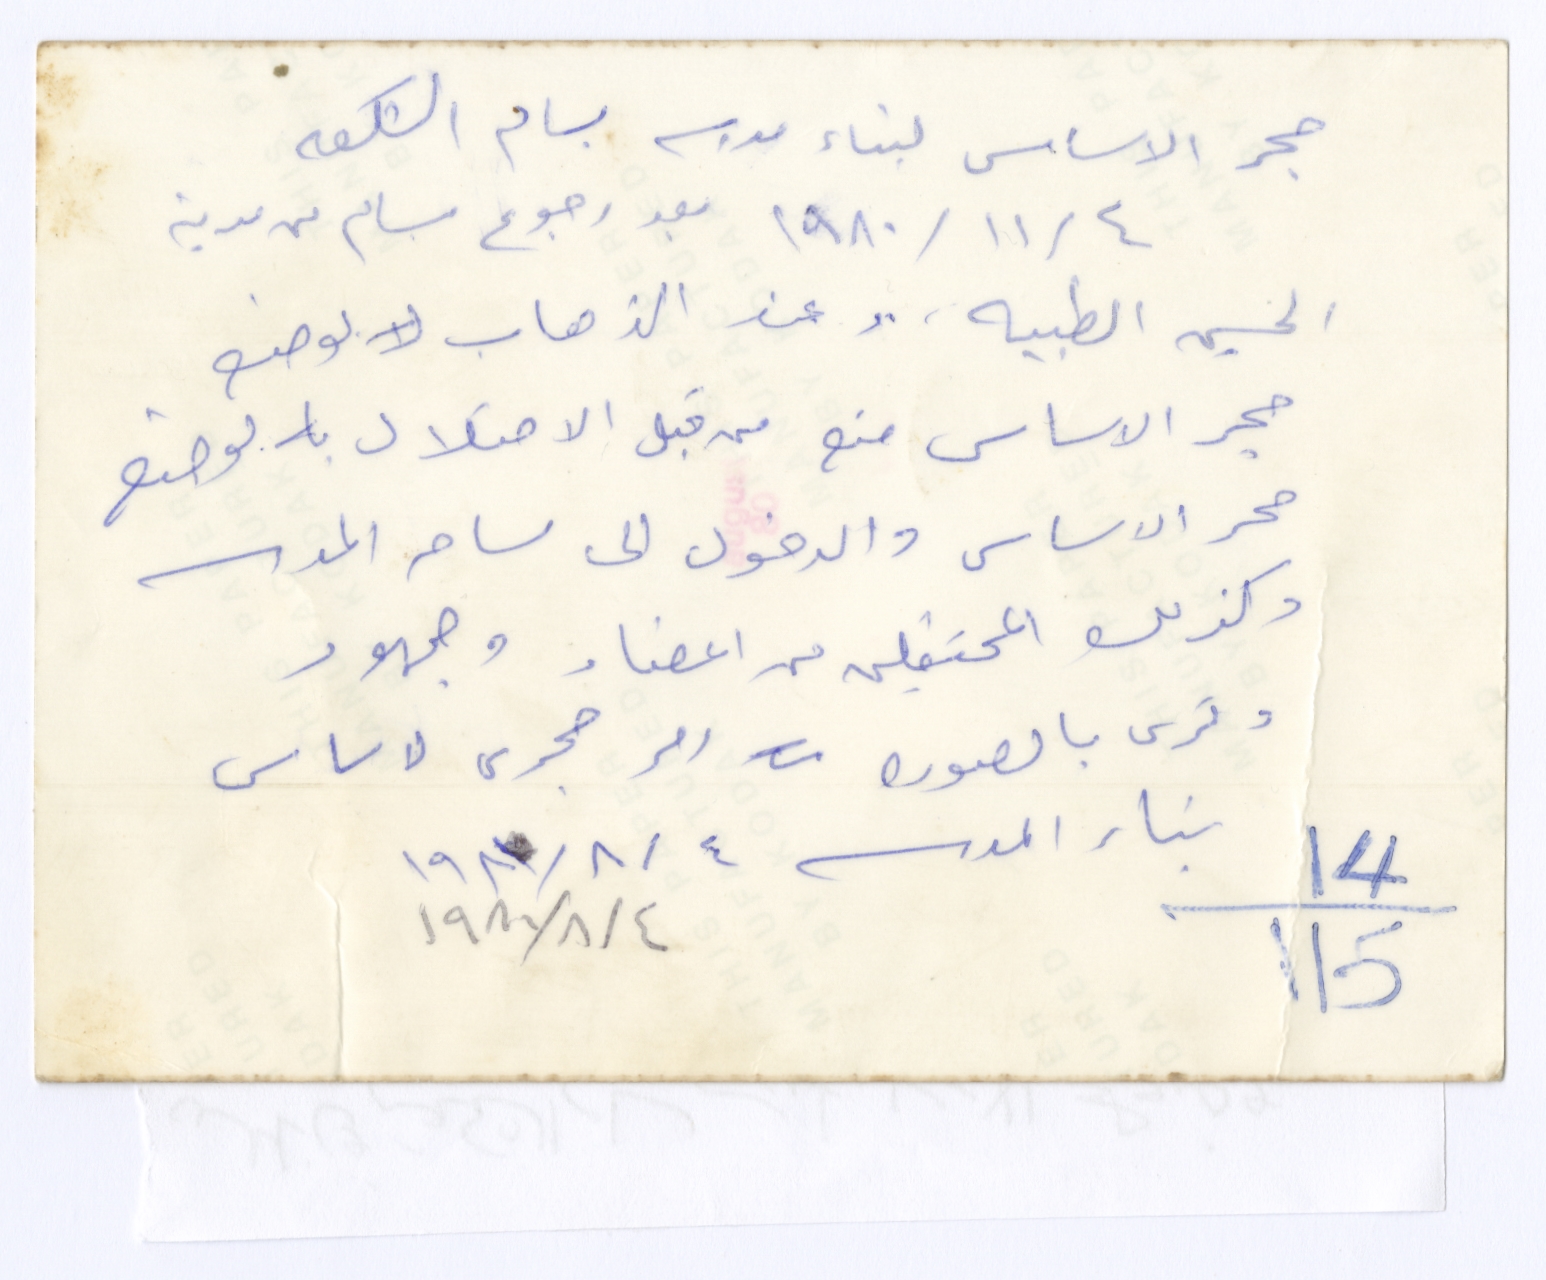 حجر الاساس لبناء مدرسه بسام الشكعه
٤/١١/١٩٨٠ بعد رجوع بسام من مدينة
الحسين الطبيه، وعند الذهاب لوضع
حجر الاساس منع من قبل الاحتلال بوضع
حجر الاساس والدخول الى ساحه المدرسه
وكذلك المحتفلين من اعضاء وجمهور
ونرى بالصوره حجرى لاساس
بناء المدرسه ٤/٨/١٩٨
٤/٨/١٩٨
14
115
THIS PAPER
MANUFACTURED
BY KODAK